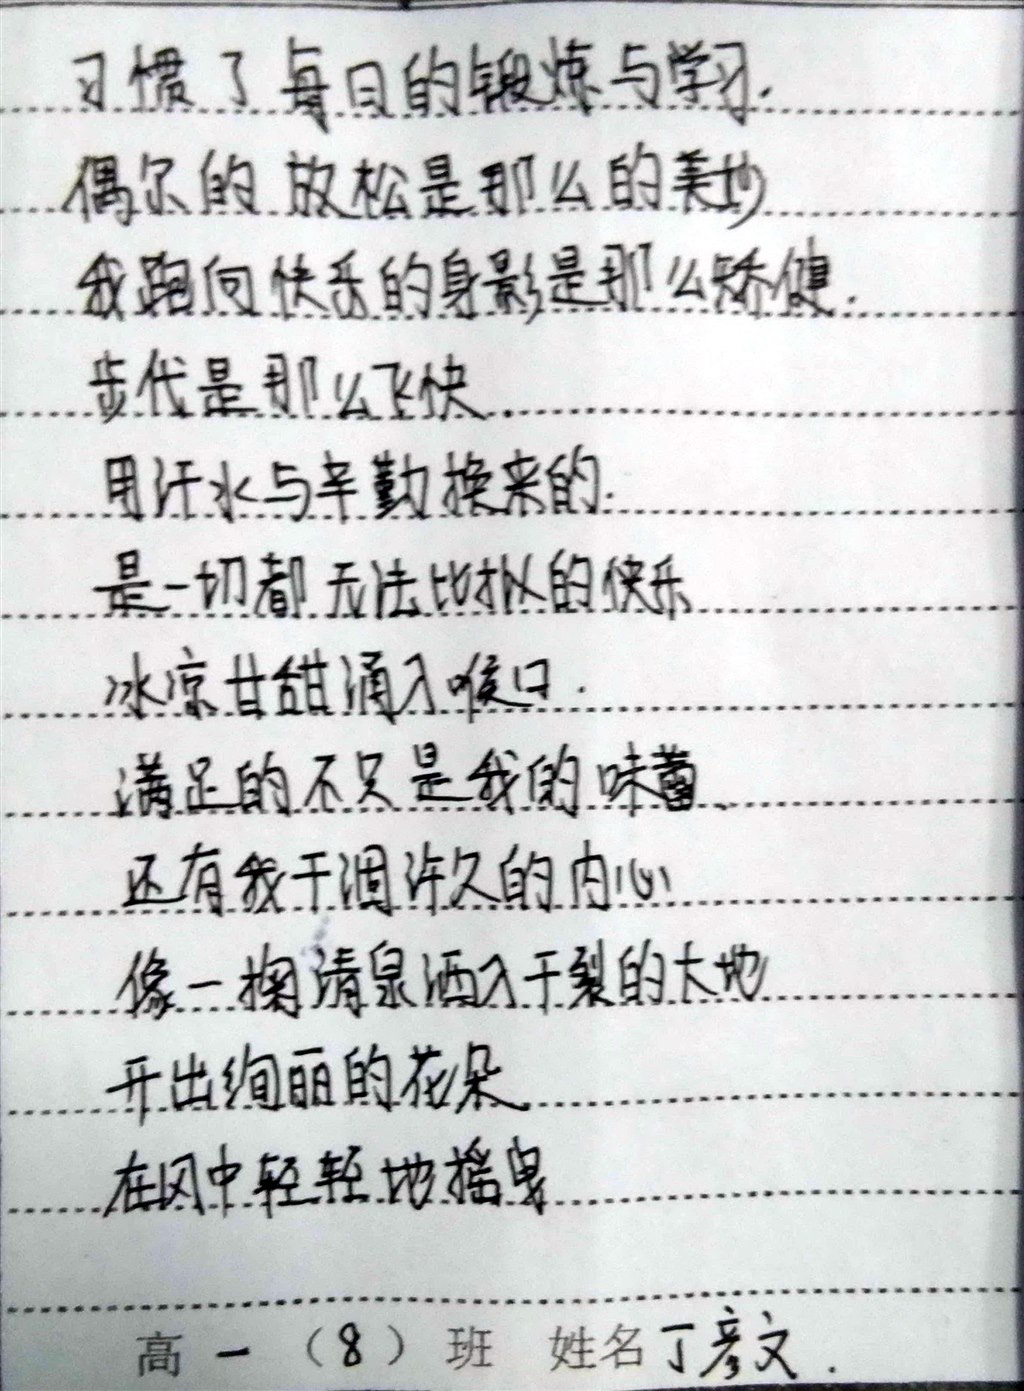 习惯了每日的锻炼与学习.
偶尔的放松是那么的美妙
我跑向快乐的身影是那么矫健.
步代是那么飞快.
用汗水与辛勤换来的.
是一切都无法比拟的快乐
冰凉甘甜涌入喉口.
满足的不只是我的味蕾.
还有我干涸许久的内心
像一掬清泉洒入干裂的大地
开出绚丽的花朵
在风中轻轻地摇曳
高一(8)班 姓名丁彦文.